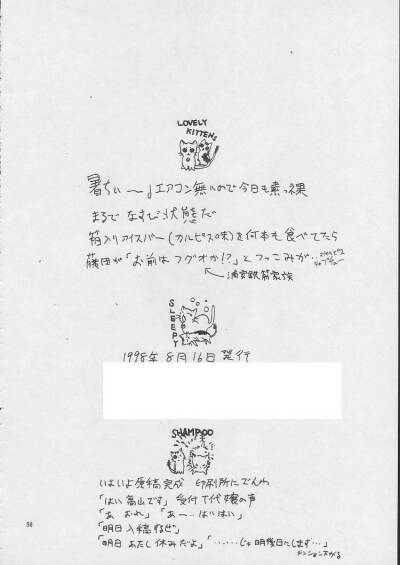 LOVELY
KITTENS
暑ちぃ〜♩エアコン無いので今日も素っ裸
まるでなすび状態だ
箱入りアイスバー(カルピス味)を何本も食べてたら
藤田が「お前はフグオか!?」とツっこみが…
浦安鉄筋家族
SLEEPY
1998年8月16日発行
SHAMPOO
いよいよ原稿完成 印刷所にでんわ
「はい 高山です」受付T代嬢の声
「あ おれ」「あー…はいはい」
「明日 入稿するぜ」
「明日 あたし休みだよ」「……じゃ明後日にします…」
テンションさがる
56